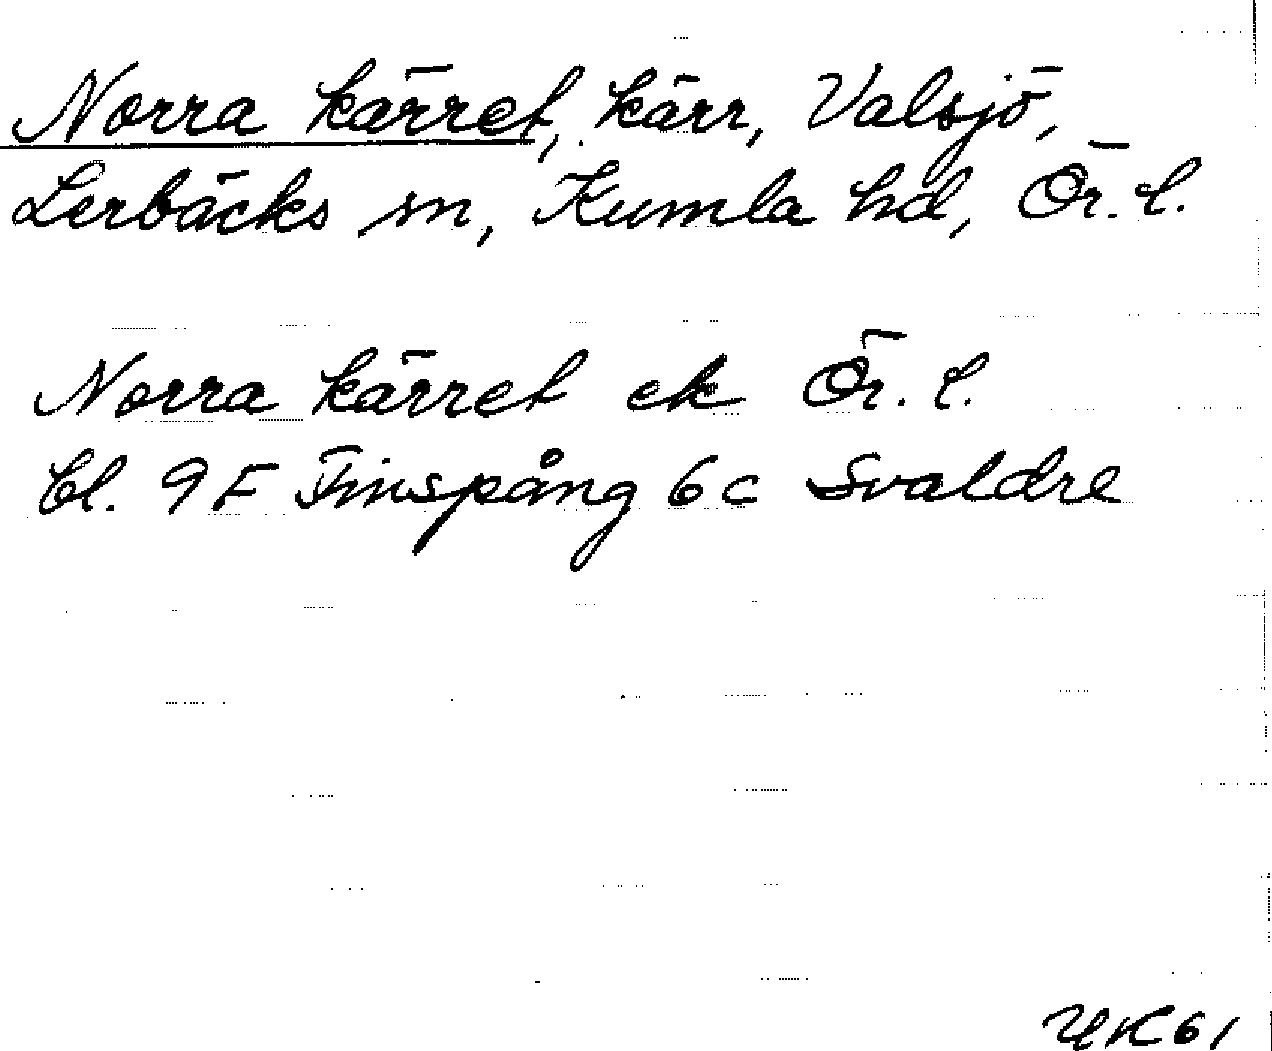 Norra kärret, kärr, Valsjö,
Lerbäcks sn, Kumla hd, Ör. l.
Norra kärret ek Ör. l.
bl. 9 F Finspång 6 c Svaldre
YK 61